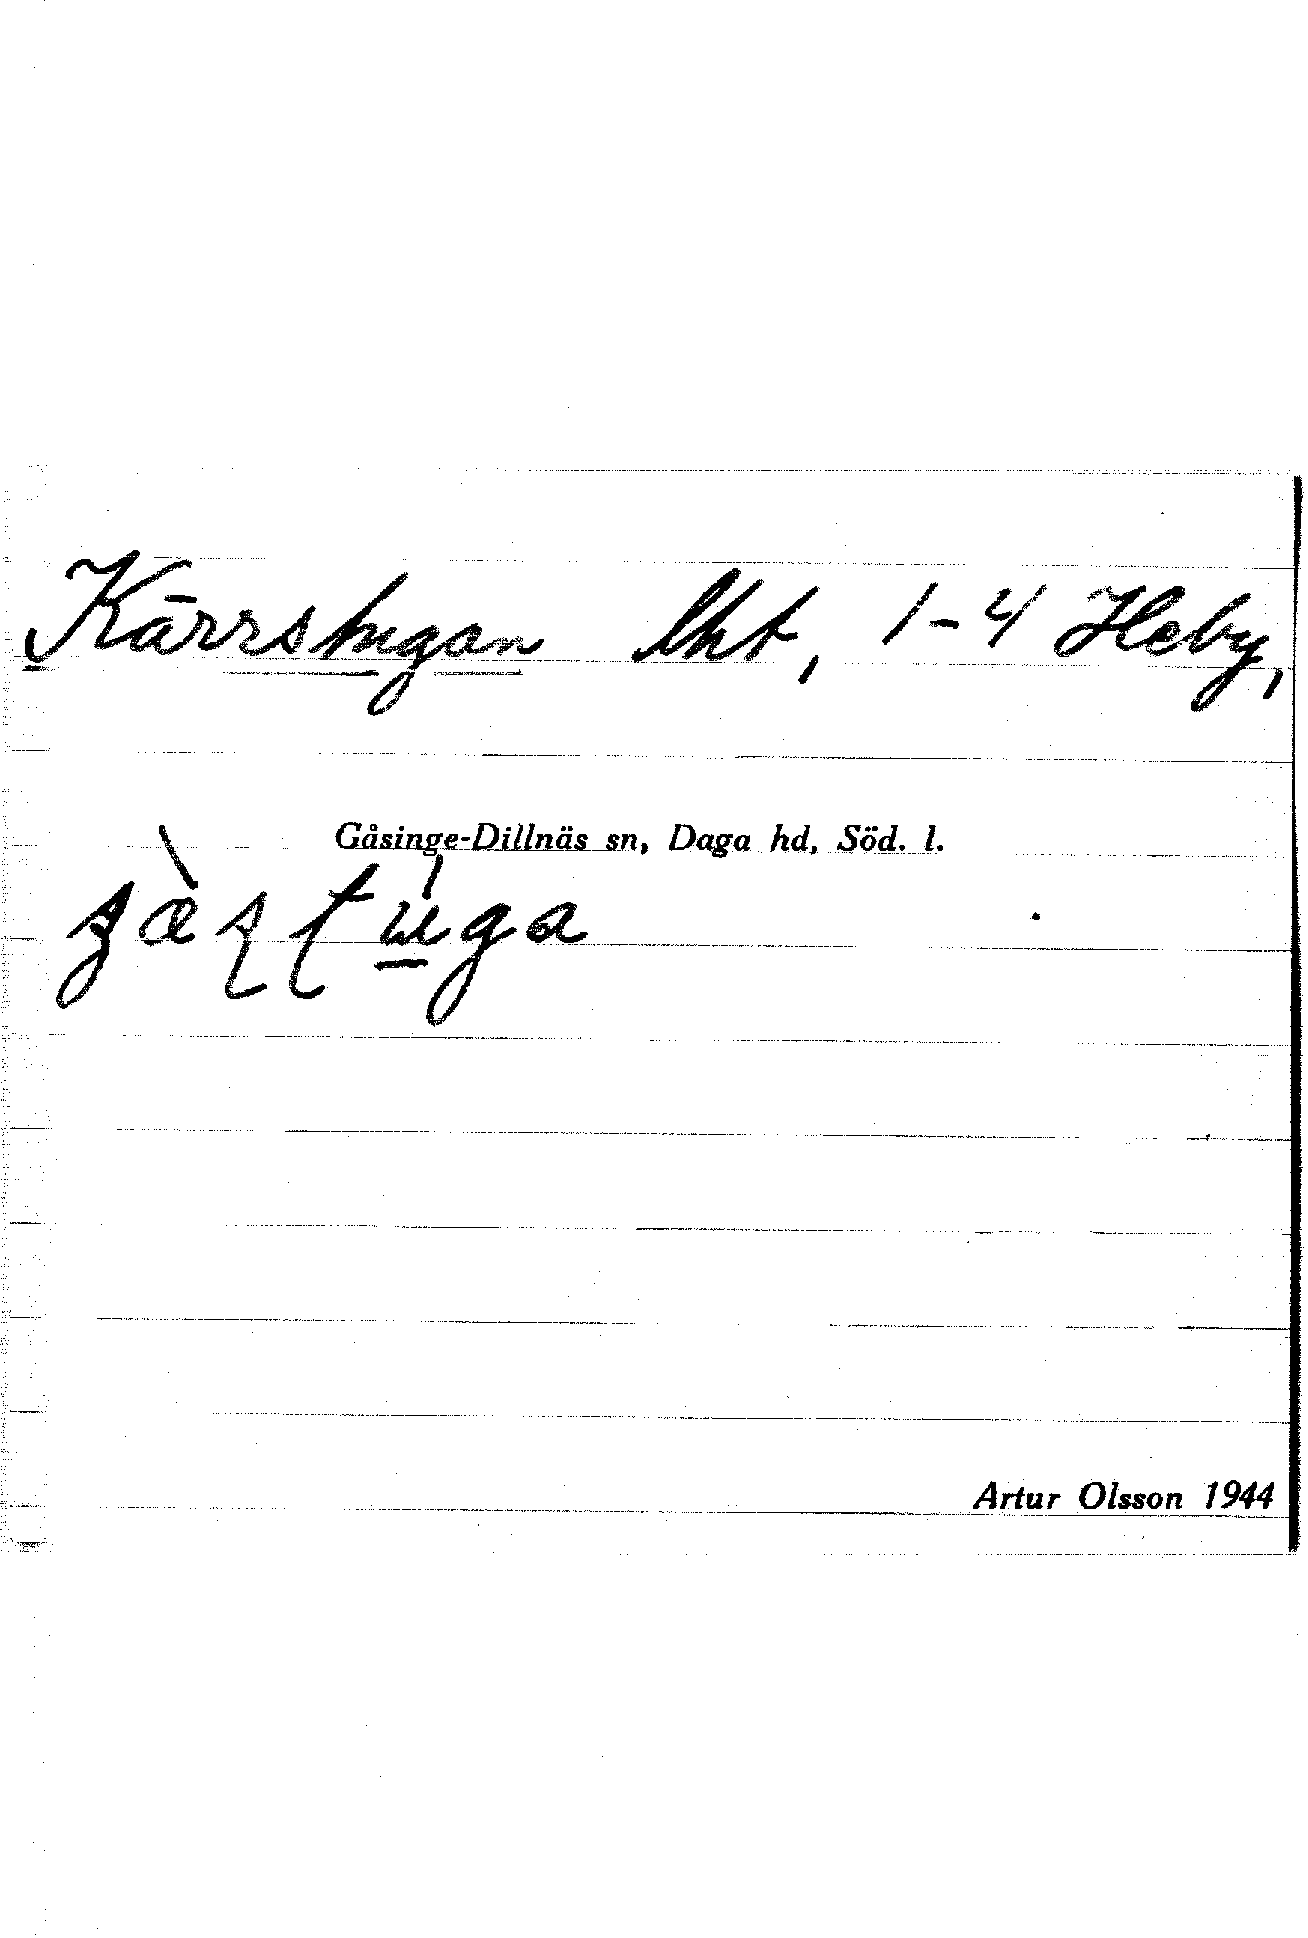 Kärrstugan lht, 1-4 Heby,
Gåsinge-Dillnäs sn, Daga hd, Söd. l.
Artur Olsson 1944